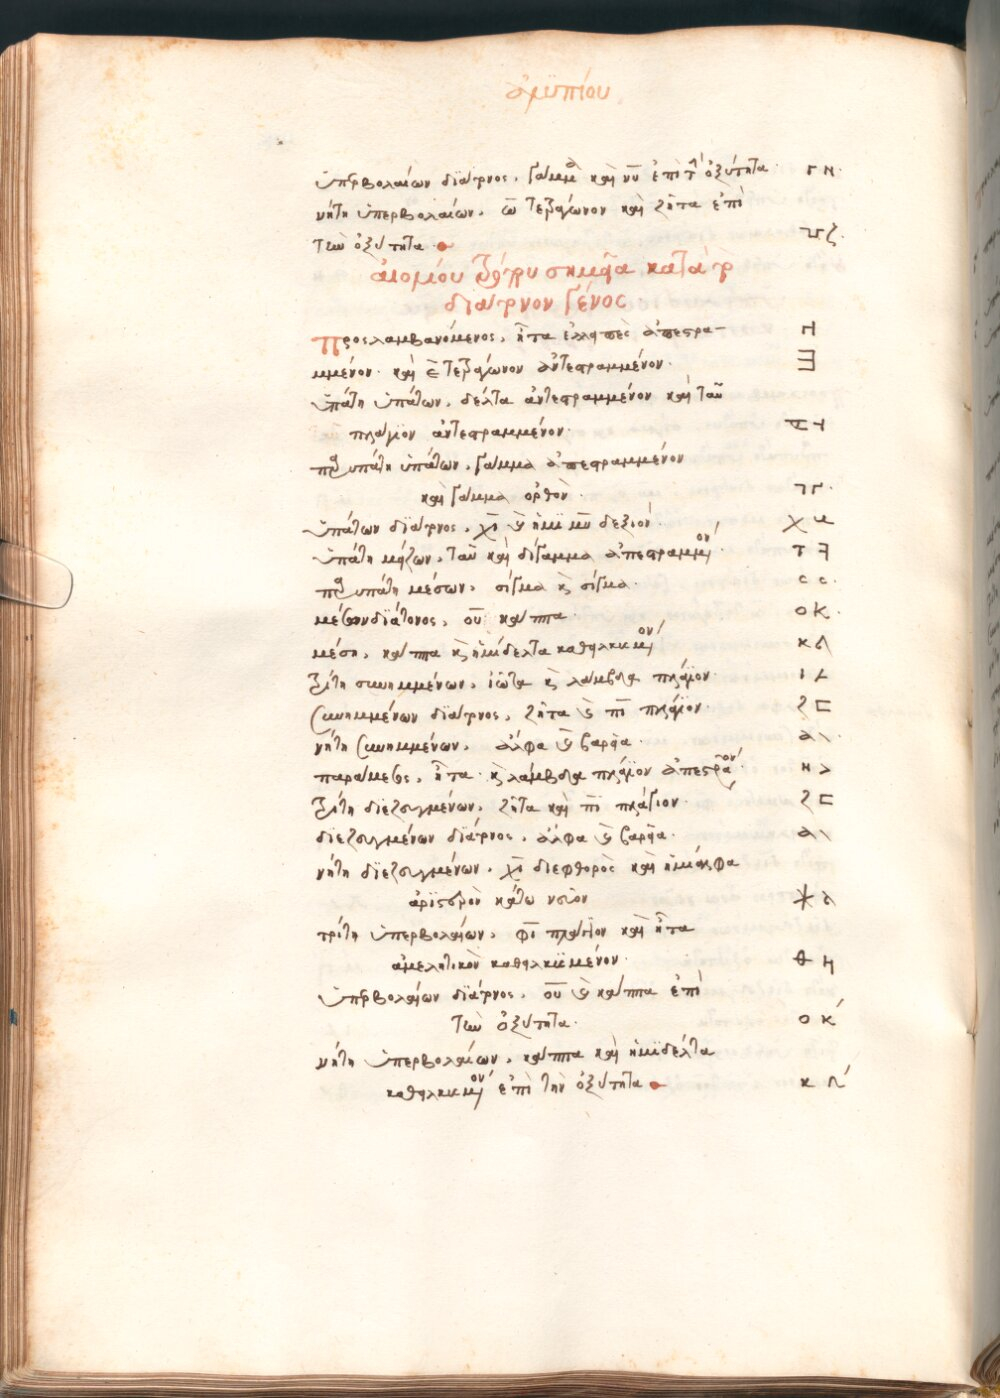 ἀλυπίου
ὑπερβολαίων διάτονος. γάμμα καὶ νῦ ἐπὶ τὴν ὀξύτητα. Γ Ν.
νήτη ὑπερβολαίων. ω τετράγωνον καὶ ζῆτα ἐπὶ
τὴν ὀξύτητα
αἰολίου τρόπου σημεῖα κατὰ τὸ
διάτονον γένος
προσλαμβανόμενος. ἦτα ἐλλιπὲς ἀπεστρα-
μμένον. καὶ ε τετράγωνον ἀντεστραμμένον. Ǝ
ὑπάτη ὑπάτων. δέλτα ἀντεστραμμένον καὶ ταῦ
πλάγιον ἀντεστραμμένον.
παρυπάτη ὑπάτων. γάμμα ἀπεστραμμένον
καὶ γάμμα ὀρθόν.
ὑπάτων διάτονος. χῖ καὶ ἡμιμυ δεξιόν. Χ
ὑπάτη μέσων. ταῦ καὶ δίγαμμα ἀπεστραμμένον. Τ
παρυπάτη μέσων. σίγμα καὶ σίγμα. C C.
μέσων διάτονος. οὖ κάππα. Ο Κ.
μέση. κάππα καὶ ἡμίδελτα καθειλκυσμένον Κ
τρίτη συνημμένων. ἰῶτα καὶ λάμβδα πλάγιον. Ι
συνημμένων διάτονος. ζῆτα καὶ πῖ πλάγιον. Ζ ⊏
νήτη συνημμένων. ἄλφα καὶ βαρεῖα. Α \
παράμεσος. ἦτα καὶ λάμβδα πλάγιον ἀπεστραμμένον. Η
τρίτη διεζευγμένων. ζῆτα καὶ πῖ πλάγιον. Ζ ⊏
διεζευγμένων διάτονος. ἄλφα καὶ βαρεῖα. Α \
νήτη διεζευγμένων. χῖ διεφθορὸς καὶ ἡμίαλφα
ἀριστερὸν κάτω νεῦον
τρίτη ὑπερβολαίων. φῖ πλάγιον καὶ ἦτα
ἀμελητικὸν καθειλκυσμένον.
ὑπερβολαίων διάτονος. οὖ καὶ κάππα ἐπὶ
τὴν ὀξύτητα. Ο Κ´
νήτη ὑπερβολαίων. κάππα καὶ ἡμίδελτα
καθειλκυσμένον ἐπὶ τὴν ὀξύτητα Κ